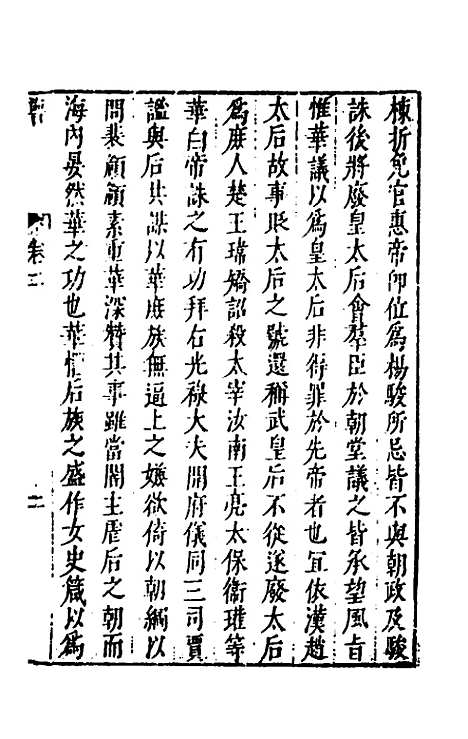 棟折免官惠帝卽位爲楊駿所忌皆不與朝政及駿
誅後將廢皇太后會羣臣於朝堂議之皆承望風旨
惟華議以爲皇太后非得罪於先帝者也宜依漢趙
太后故事貶太后之號還稱武皇后不從遂廢太后
爲庶人楚王瑋矯詔殺太宰汝南王亮太保衞瓘等
華白帝誅之有功拜右光祿大夫開府儀同三司賈
謐與后共謀以華庶族無逼上之嫌欲倚以朝綱以
問裴頠頠素重華深贊其事雖當闇主虐后之朝而
海內晏然華之功也華懼后族之盛作女史箴以爲
卷二